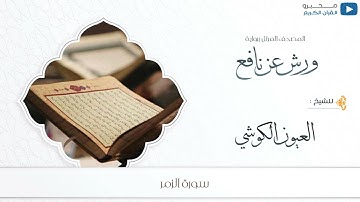 محبرو
القرآن الكريم
المصحف المرتل برواية
ورش عن نافع
للشيخ :
العيون الكوشي
سورة الزمر